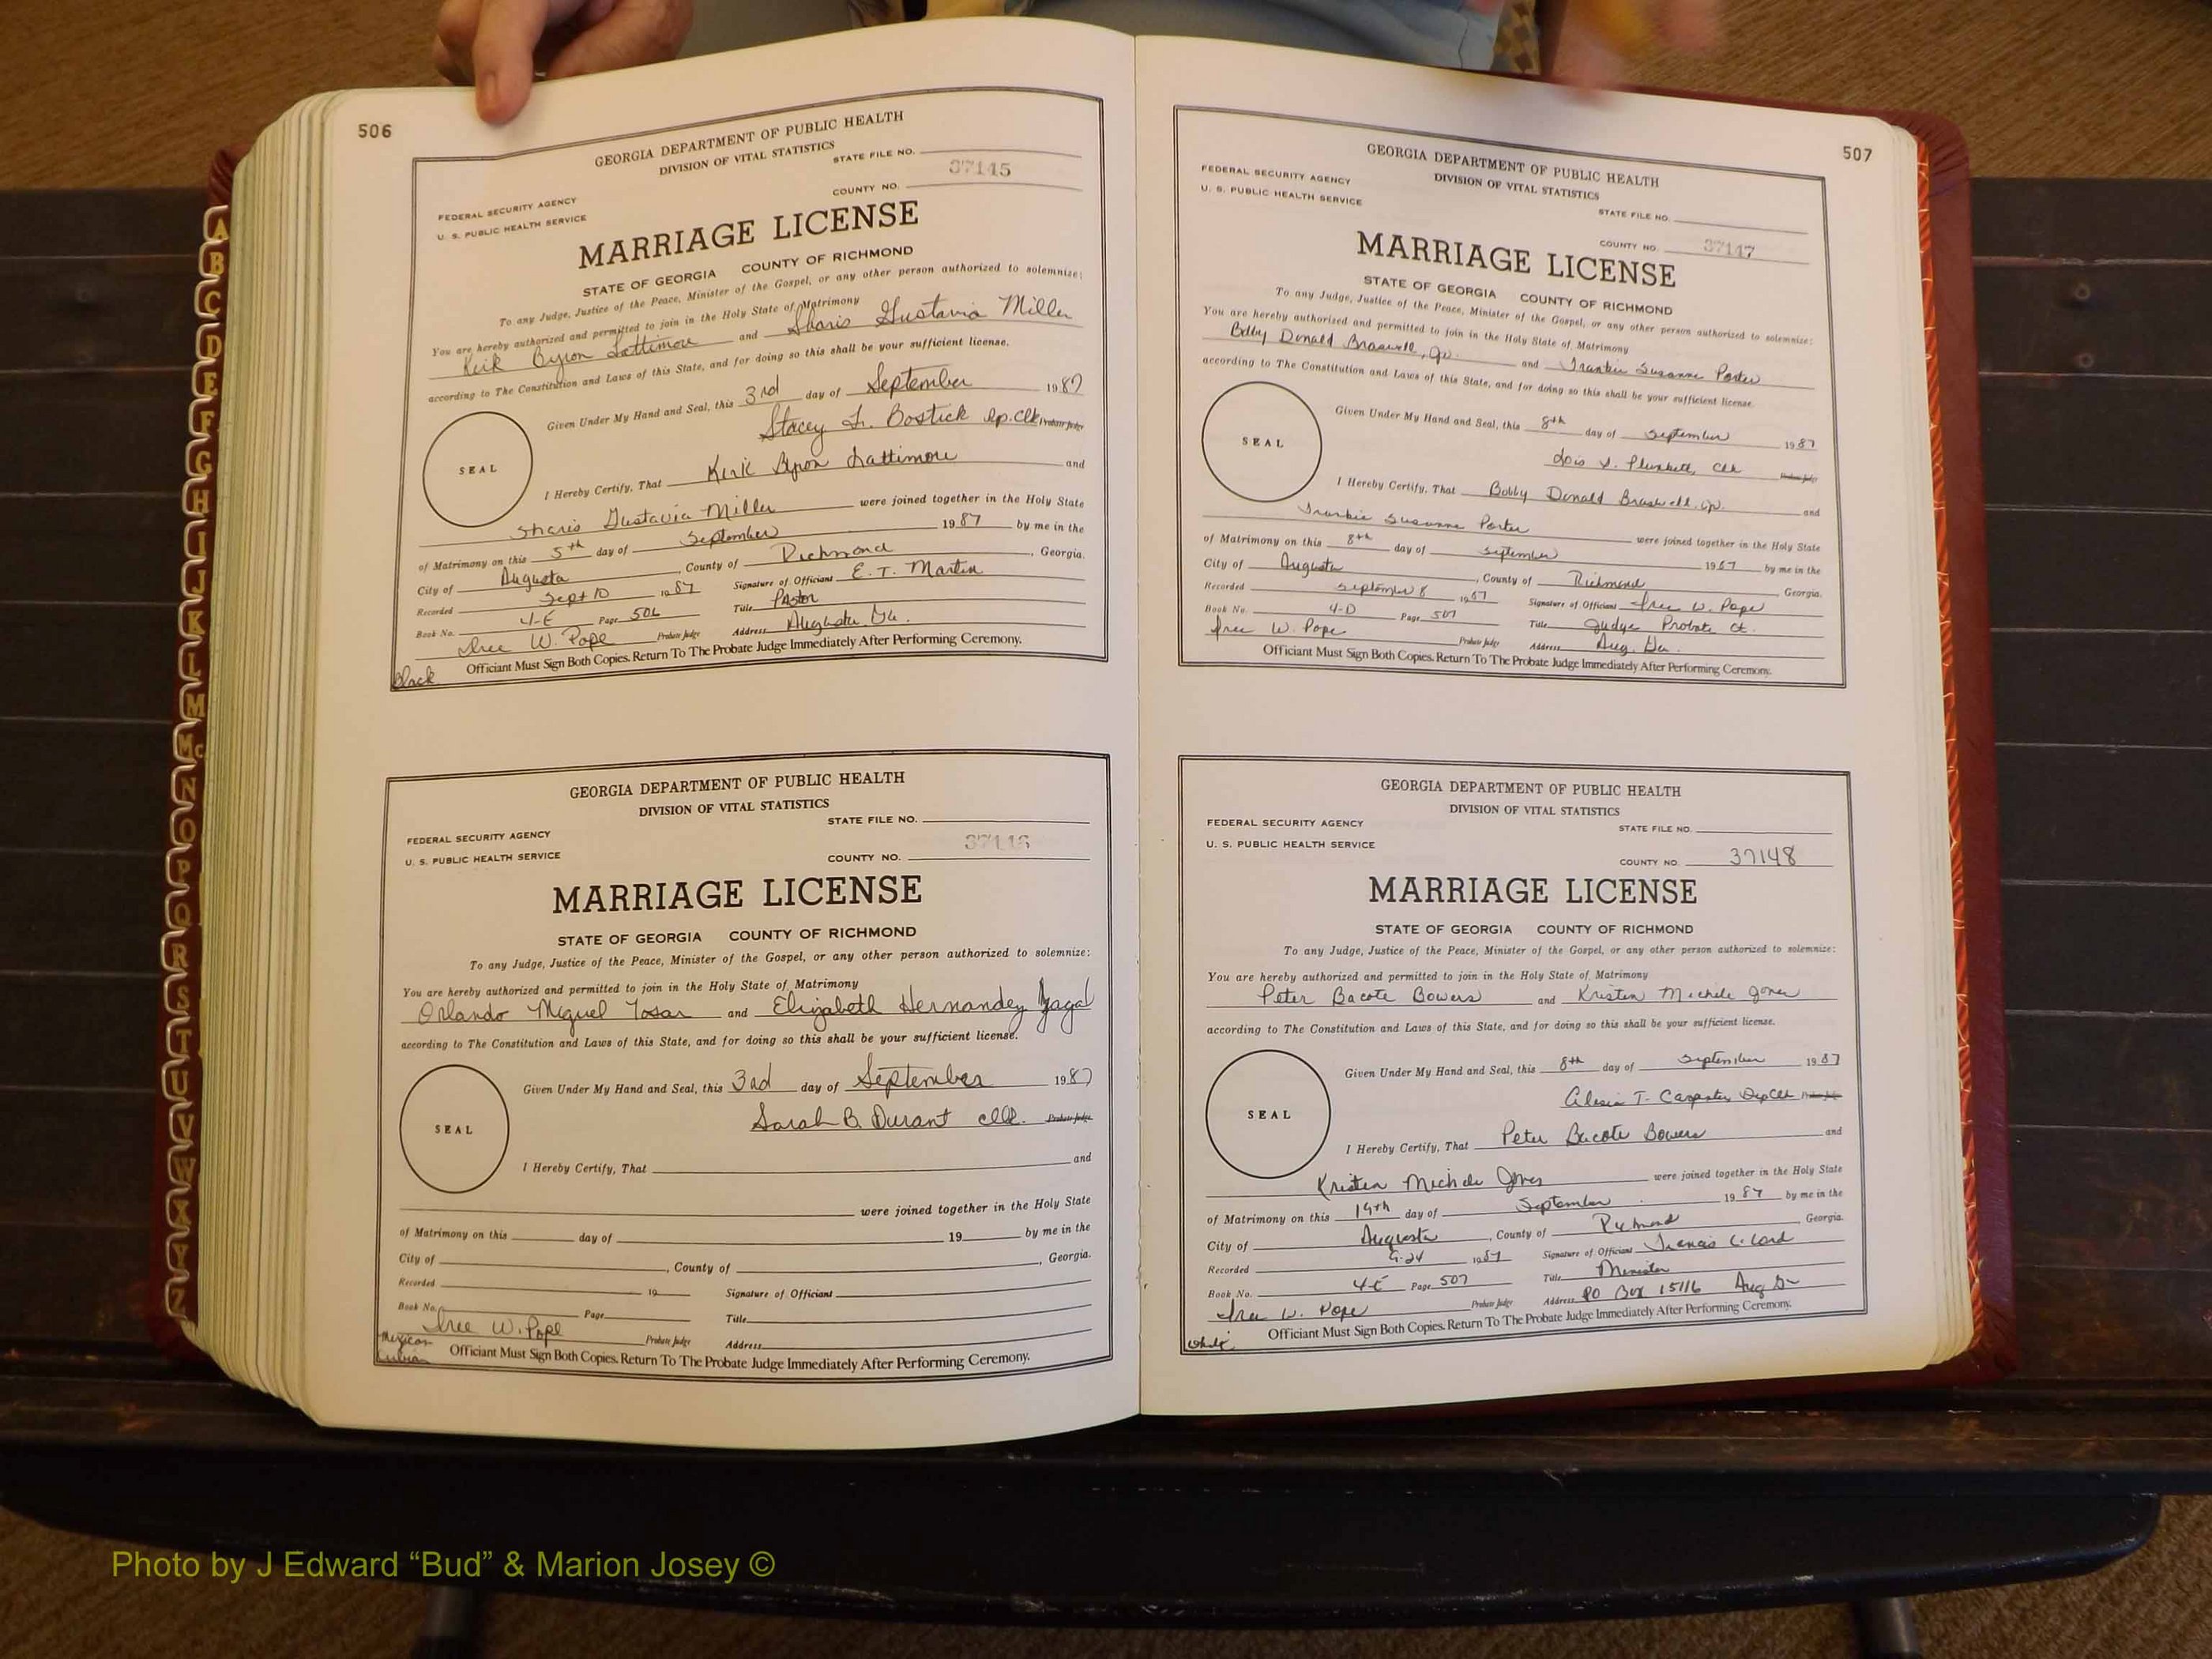 506
GEORGIA DEPARTMENT OF PUBLIC HEALTH
DIVISION OF VITAL STATISTICS
STATE FILE NO.
FEDERAL SECURITY AGENCY
U. S. PUBLIC HEALTH SERVICE
COUNTY NO. 37145
MARRIAGE LICENSE
STATE OF GEORGIA COUNTY OF RICHMOND
To any Judge, Justice of the Peace, Minister of the Gospel, or any other person authorized to solemnize:
You are hereby authorized and permitted to join in the Holy State of Matrimony
Kirk Byron Lattimore and Sharis Gustavia Miller
according to The Constitution and Laws of this State, and for doing so this shall be your sufficient license.
Given Under My Hand and Seal, this 3rd day of September 1987
Stacey L. Bostick Dp. Clk Probate Judge
SEAL
I Hereby Certify, That Kirk Byron Lattimore and
Sharis Gustavia Miller were joined together in the Holy State
of Matrimony on this 5th day of September 1987 by me in the
City of Augusta, County of Richmond, Georgia.
Recorded Sept 10 1987 Signature of Officiant E. T. Martin
Book No. 4-E Page 506 Title Pastor
W. Pope Probate Judge Address Augusta Ga.
Officiant Must Sign Both Copies. Return To The Probate Judge Immediately After Performing Ceremony.
Black
GEORGIA DEPARTMENT OF PUBLIC HEALTH
DIVISION OF VITAL STATISTICS
STATE FILE NO.
FEDERAL SECURITY AGENCY
U. S. PUBLIC HEALTH SERVICE
COUNTY NO. 37146
MARRIAGE LICENSE
STATE OF GEORGIA COUNTY OF RICHMOND
To any Judge, Justice of the Peace, Minister of the Gospel, or any other person authorized to solemnize:
You are hereby authorized and permitted to join in the Holy State of Matrimony
Orlando Miguel Tosar and Elizabeth Hernandez Yagal
according to The Constitution and Laws of this State, and for doing so this shall be your sufficient license.
Given Under My Hand and Seal, this 3rd day of September 1987
Sarah B. Durant clk. Probate Judge
SEAL
I Hereby Certify, That and
were joined together in the Holy State
of Matrimony on this day of 19 by me in the
City of , County of , Georgia.
Recorded 19 Signature of Officiant
Book No. Page Title
W. Pope Probate Judge Address
Mexican
Officiant Must Sign Both Copies. Return To The Probate Judge Immediately After Performing Ceremony.
507
GEORGIA DEPARTMENT OF PUBLIC HEALTH
DIVISION OF VITAL STATISTICS
FEDERAL SECURITY AGENCY
U. S. PUBLIC HEALTH SERVICE
STATE FILE NO.
COUNTY NO. 37147
MARRIAGE LICENSE
STATE OF GEORGIA COUNTY OF RICHMOND
To any Judge, Justice of the Peace, Minister of the Gospel, or any other person authorized to solemnize:
You are hereby authorized and permitted to join in the Holy State of Matrimony
Bobby Donald Braswell, Jr. and Frankie Susanne Porter
according to The Constitution and Laws of this State, and for doing so this shall be your sufficient license.
Given Under My Hand and Seal, this 8th day of September 1987
Lois S. Plunkett, Clk Probate Judge
SEAL
I Hereby Certify, That Bobby Donald Braswell, Jr. and
Frankie Susanne Porter were joined together in the Holy State
of Matrimony on this 8th day of September 1987 by me in the
City of Augusta, County of Richmond Georgia.
Recorded September 8 1987 Signature of Officiant W. Pope
Book No. 4-D Page 507 Title Judge Probate Ct.
W. Pope Probate Judge Address Aug. Ga.
Officiant Must Sign Both Copies. Return To The Probate Judge Immediately After Performing Ceremony.
GEORGIA DEPARTMENT OF PUBLIC HEALTH
DIVISION OF VITAL STATISTICS
FEDERAL SECURITY AGENCY
STATE FILE NO.
U. S. PUBLIC HEALTH SERVICE
COUNTY NO. 37148
MARRIAGE LICENSE
STATE OF GEORGIA COUNTY OF RICHMOND
To any Judge, Justice of the Peace, Minister of the Gospel, or any other person authorized to solemnize:
You are hereby authorized and permitted to join in the Holy State of Matrimony
Peter Bacote Bowers and Kristen Michele Jones
according to The Constitution and Laws of this State, and for doing so this shall be your sufficient license.
Given Under My Hand and Seal, this 8th day of September 1987
Alesia T. Carpenter Dep Clk
SEAL
I Hereby Certify, That Peter Bacote Bowers and
Kristen Michele Jones were joined together in the Holy State
of Matrimony on this 19th day of September 1987 by me in the
City of Augusta, County of Richmond Georgia.
Recorded 9-24 1987 Signature of Officiant Francis C. Lord
Book No. 4-E Page 507 Title Minister
W. Pope Probate Judge Address PO Box 15116 Aug Ga
White
Officiant Must Sign Both Copies. Return To The Probate Judge Immediately After Performing Ceremony.
A
B
C
D
E
F
G
H
I
J
K
L
M
Mc
N
O
P
Q
R
S
T
U
V
W
X
Y
Z
Photo by J Edward “Bud” & Marion Josey ©